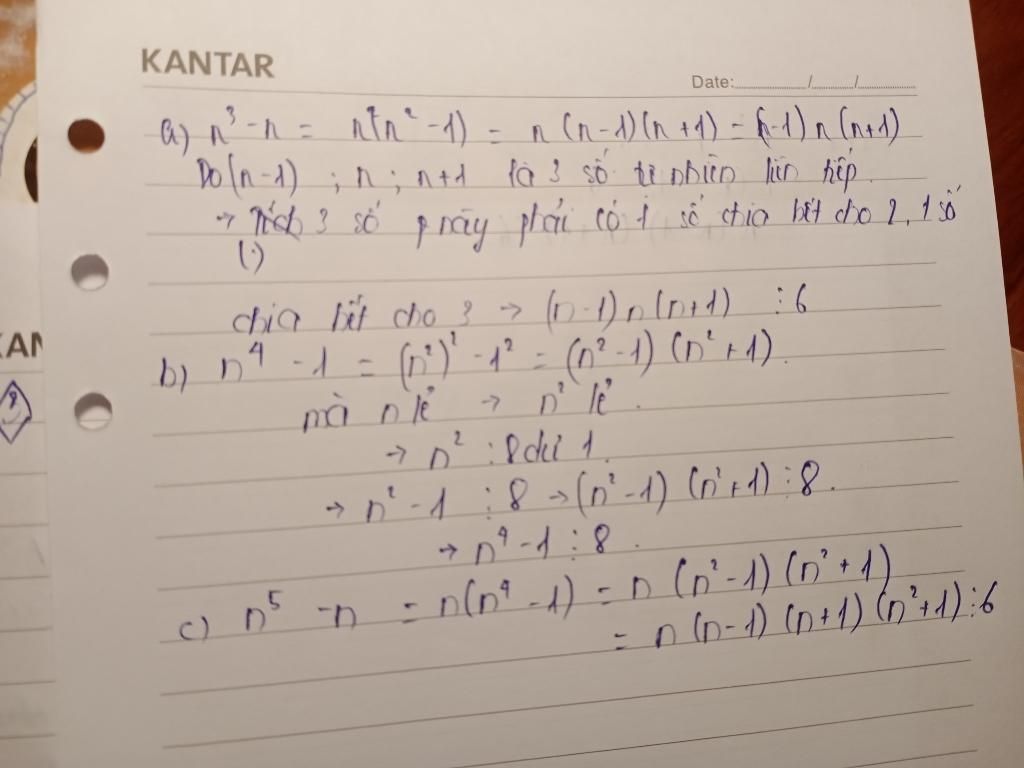 KANTAR
Date:............/........./............
a) n³ - n = n(n² - 1) = n (n-1)(n+1) = (n-1) n (n+1)
Do (n-1) ; n ; n+1 là 3 số tự nhiên liên tiếp.
→ Tích 3 số này phải có 1 số chia hết cho 2, 1 số
(·)
chia hết cho 3 → (n-1) n (n+1) ⋮ 6
b) n⁴ - 1 = (n²)² - 1² = (n² - 1) (n² + 1).
mà n lẻ → n² lẻ.
→ n² : 8 dư 1.
→ n² - 1 ⋮ 8 → (n² - 1) (n² + 1) ⋮ 8.
→ n⁴ - 1 ⋮ 8.
c) n⁵ - n = n(n⁴ - 1) = n (n² - 1) (n² + 1)
= n (n-1) (n+1) (n² + 1) ⋮ 6
KAN